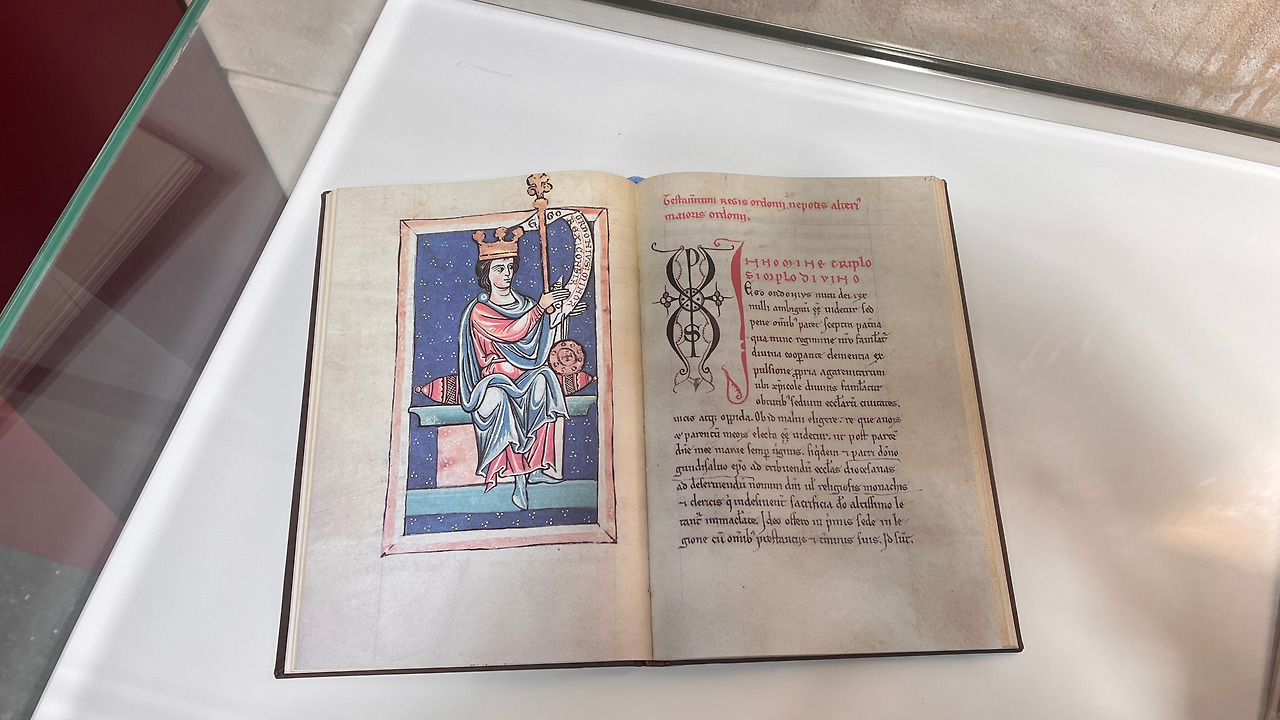 Testam̄tum Regis ordonij nepotis alteri⁹
maioris ordonij.
IN NOMINE TRIPLO
SIMPLO DIVINO
Ego ordonius nutu dei rex
nulli ambiguū eē videtur sed
pene omnib; patet sceptra patria
qua nunc regimine nro famulat̄
divina coopante clementia ex
pulsione ppria agarenitarum
ubi xp̄icole divinis famulatur
obtutib; sedium ecclarū ciuitates.
uicos atq; oppida. Ob id malui eligere. re que auoȝ
parentū meoȝ electa eē uidetur. ut post partē
dn̄e mee marie semp uirginis. siqdem patri dōno
gundisaluo epo ad tribuendū ecclas diocesanas
ad deseruiendū nomini dn̄i ul religiosis monachis
clericis q indesinent̄ sacrificia do altissimo le
tant̄ immaclata. Ideo offero in p̄mis sede in le
gione cū omnib; prestantijs terminis suis. Id sūt.